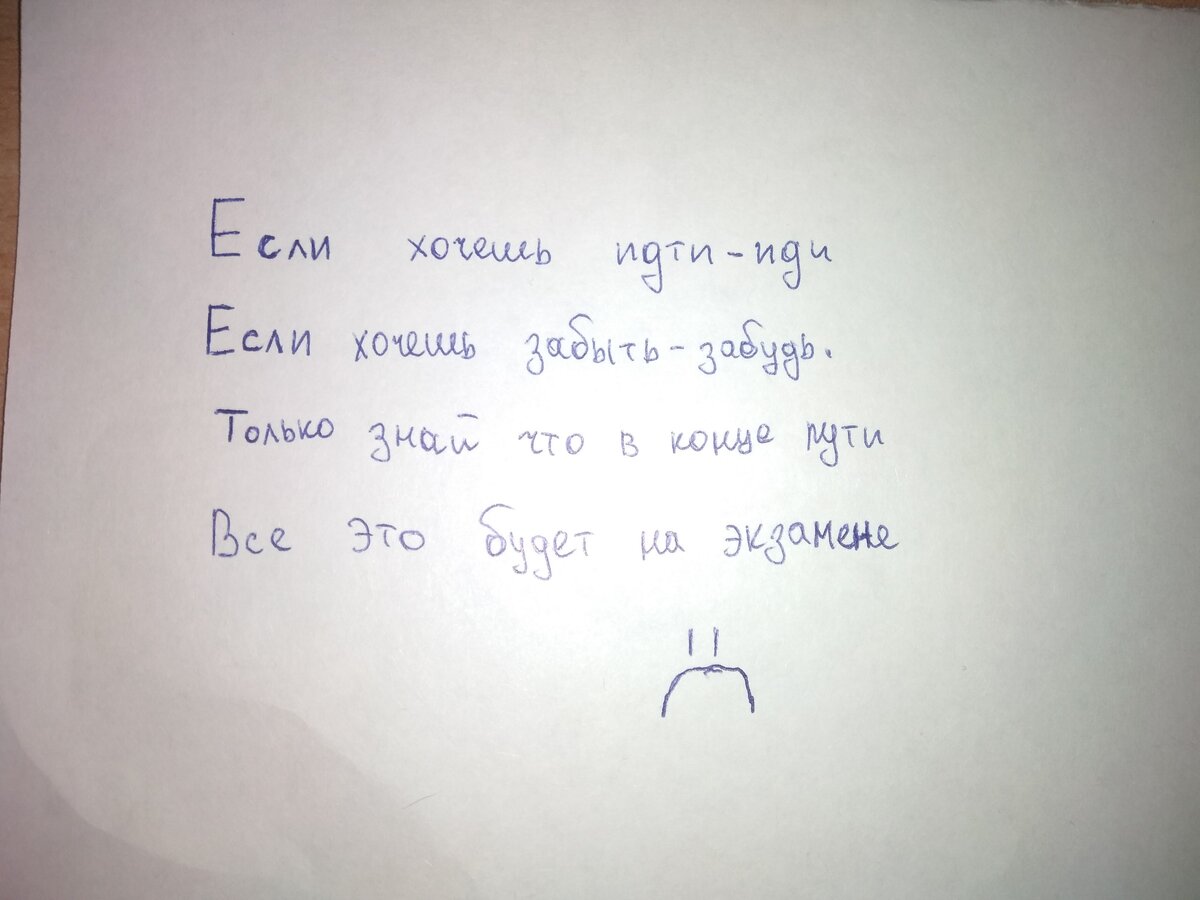 Если хочешь идти-иди
Если хочешь забыть-забудь.
Только знай что в конце пути
Все это будет на экзамене